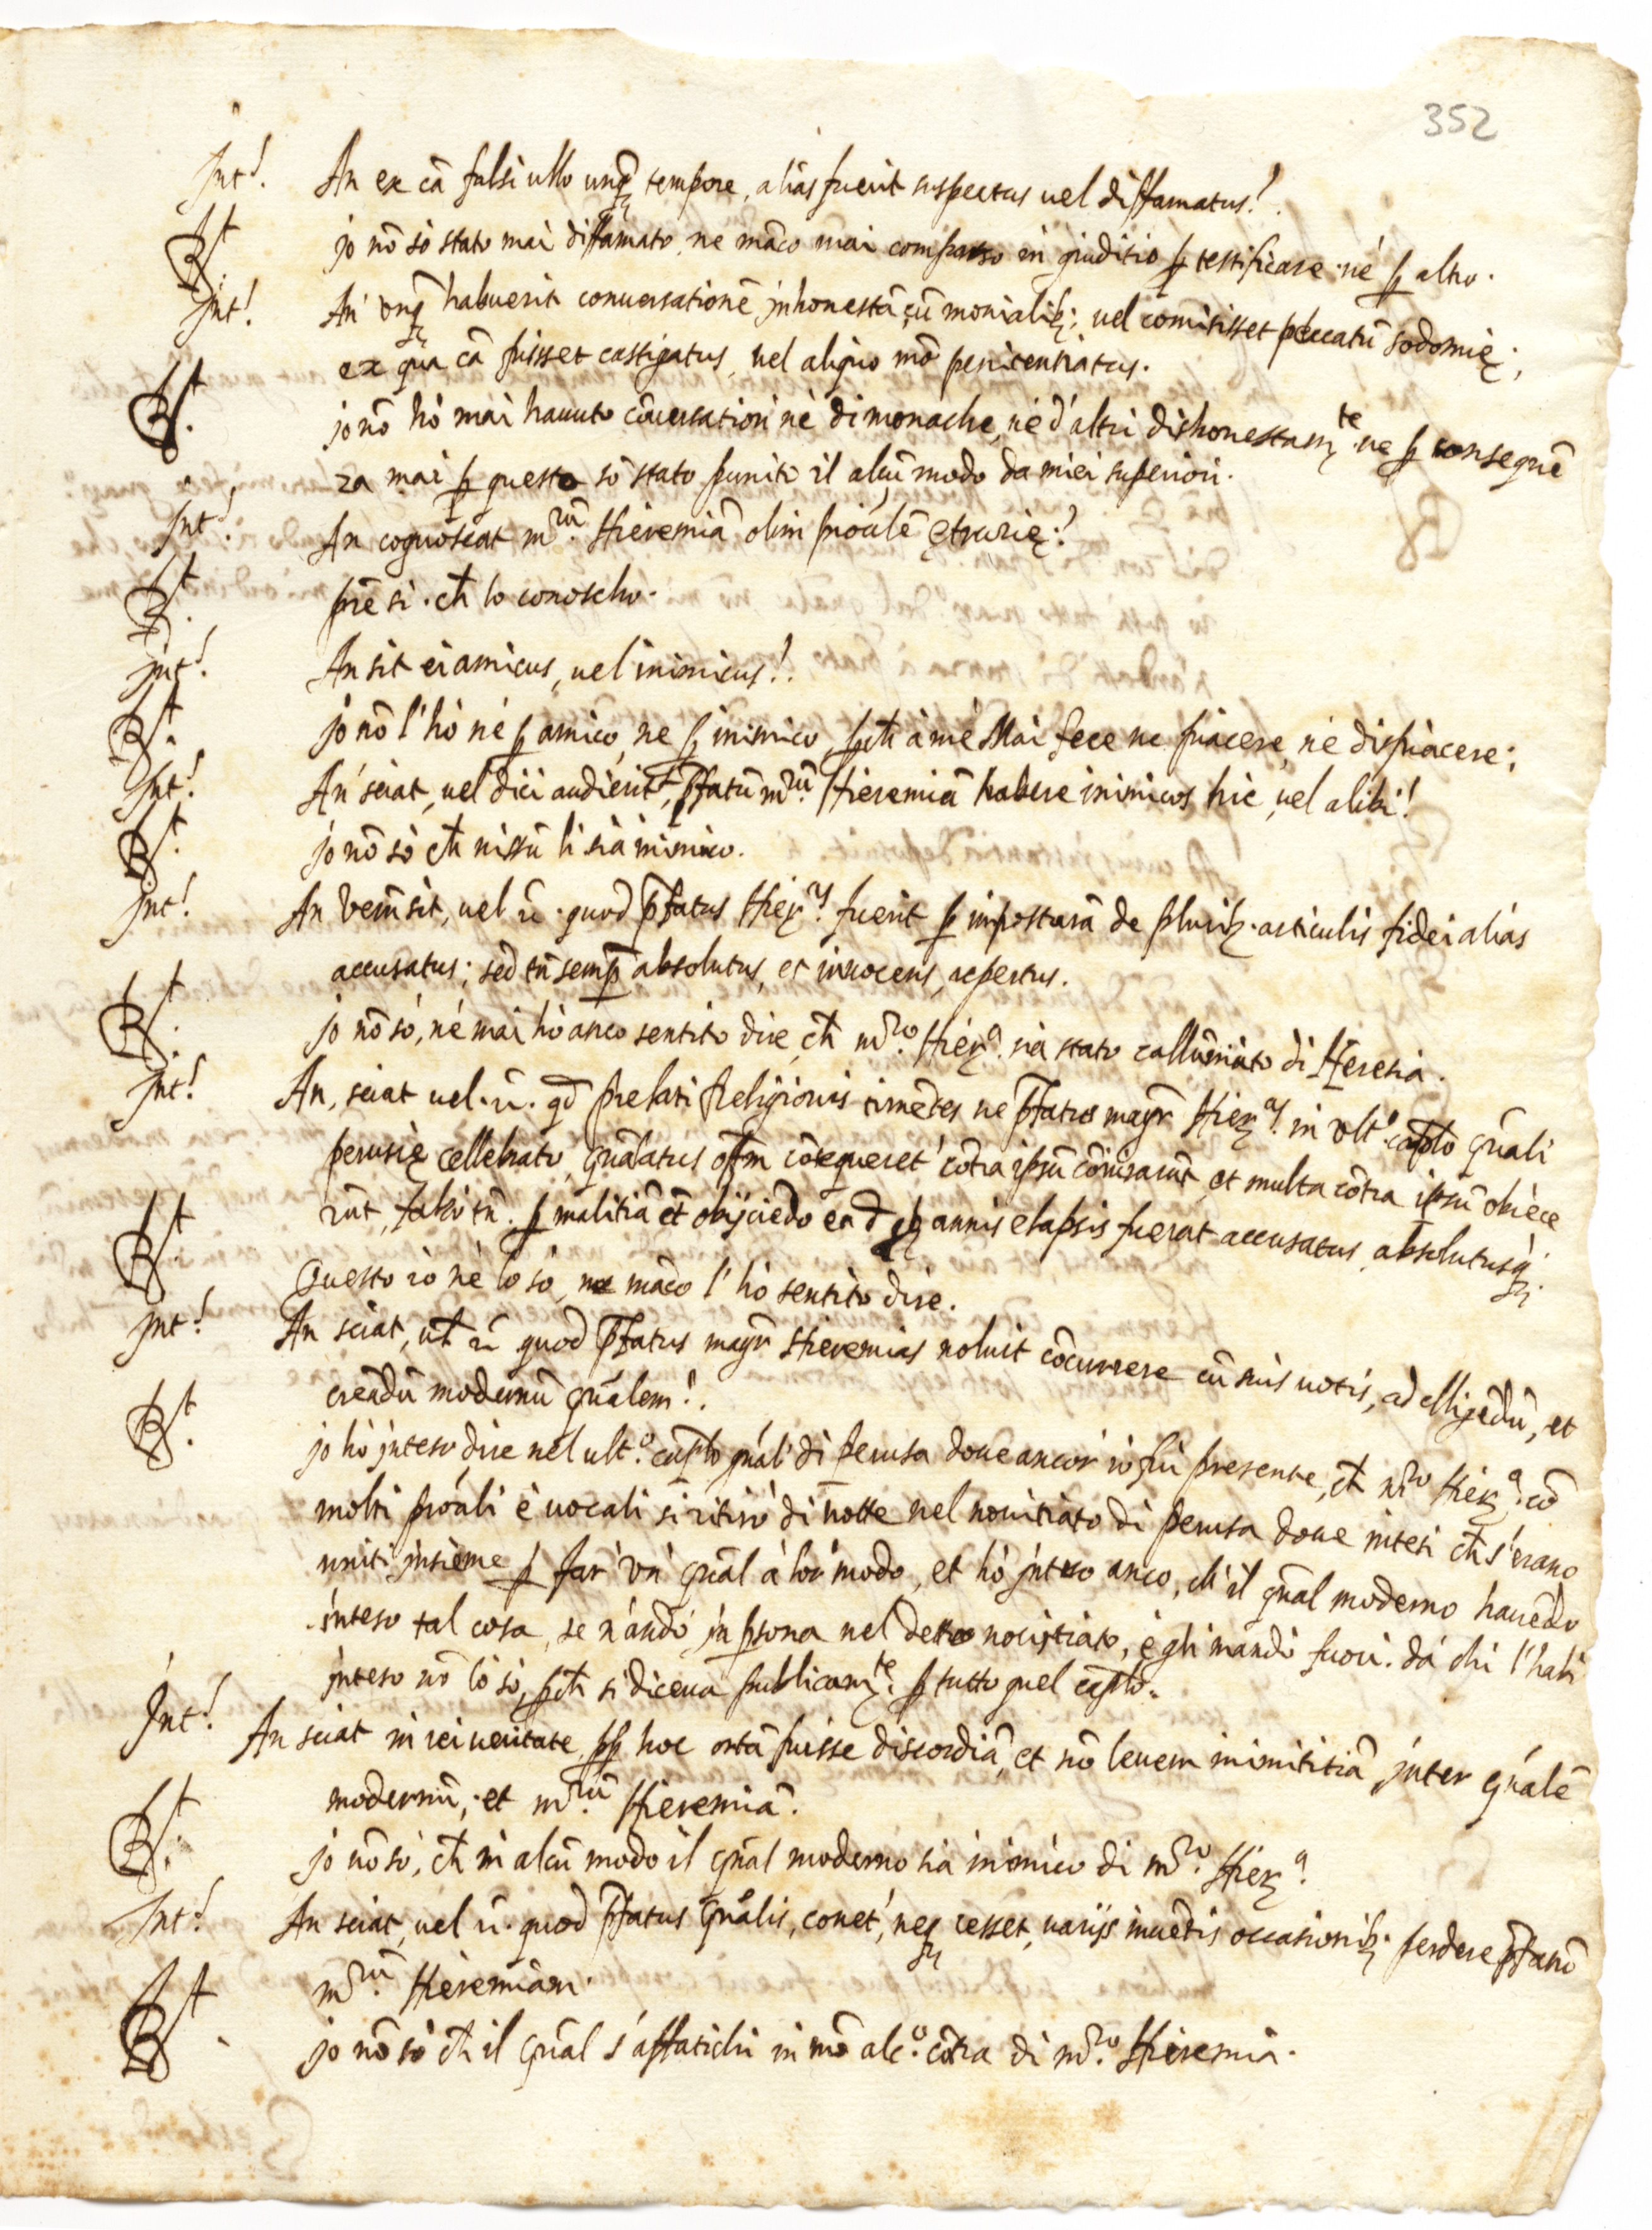 352
Int.! An ex cā falsi ullo unq̄ tempore, alias fuerit suspectus uel diffamatus!
R.t jo nō sò stato mai diffamato, ne māco mai comparso in giuditio ꝑ testificare nè ꝑ altro.
Int! An' unq̄ habuerit conuersationē inhonestā cū monialib; uel comisisset peccatū sodomię;
ex qua cā fuisset castigatus, uel aliquo mō penitentiatus.
R.t jo nō hò mai hauuto cōuersation nè di monache, nè d'altri dishonestam.te ne ꝑ conseguē
za mai ꝑ questo sò stato punito il alcū modo da miei superiori.
Int! An cognoscat m.rū Hieremiā olim ꝓuīalē ętrurię?
R.t prē sì. ch̄ lo conoscho.
int! An sit ei amicus, uel inimicus!
R.t jo nō l'hò nè ꝑ amico, ne ꝑ inimico, ꝑch̄ à mè Mai fece ne piacere, nè dispiacere;
Int! An' sciat, uel dici audierit, p̄fatū m.rū Hieremiā habere inimicos hic, uel alibi!
R.t jo nō sò ch̄ nissū li sia inimico.
int! An Verū sit, uel n̄. quod p̄fatus Hier.as fuerit ꝑ imposturā de plurib. articulis fidei aliàs
accusatus; sed tn̄ semꝑ absolutus, et innocens, repertus.
R.t jo nō sò, nè mai hò anco sentito dire, ch̄ m.ro Hier.a sia stato callūniato di Heresia.
int! An, sciat uel. n̄. qd̄ prelati Religionis timētes ne p̄fatus mag.r Hier.as in ult.o cap̄lo gn̄ali
perusię cellebrato, gn̄alatus offm cōsequeret' cōtra ipsū cōuisarūt et multa cōtra ipsū obiece
rūt, falso tn̄. ꝑ malitiā et obijciēdo ea d q.b annis elapsis fuerat accusatus, absolutusq;.
R.t Questo io nè lo sò, ne māco l'hò sentito dire.
int! An sciat, ut n̄ quod p̄fatus mag.r Hieremias noluit cōcurrere cū suis uotis, ad elligēdū, et
creādū modernū gn̄alem!.
R.t jo hò inteso dire nel ult.o cap̄lo gn̄ali di Perusa doue ancor io fui presente, ch̄ m.ro Hier.a cō
molti ꝓuīali è uocali si ritirò di notte nel nouitiato di Perusa doue intesi ch̄ s'erano
uniti insieme ꝑ far' un' gn̄al à lor modo, et hò inteso anco, ch' il gn̄al moderno hauēdo
inteso tal cosa, se n'andò in ꝑsona nel detto nouitiato, è gli mandò fuori. dà chi l'habi
inteso nō lo sò, ꝑch̄ si diceua publicam.te ꝑ tutto quel cap̄lo.
Int! An sciat in rei ueritate ꝓꝑ hoc ortā fuisse discordiā, et nō leuem inimicitiā inter gn̄alē
modernū, et m.rū Hieremiā.
R.t jo nō sò, ch̄ in alcū modo il gn̄al moderno sia inimico di m.ro Hier.a
Int! An sciat, uel n̄. quod p̄fatus gn̄alis, conet', neq; cesset, varijs inuētis occasionib. perdere p̄fatū
m.rū Hieremiam.
R.t jo nō sò ch̄ il gn̄al s'affatichi in mō alc.o cōtra di m.ro Hieremia.